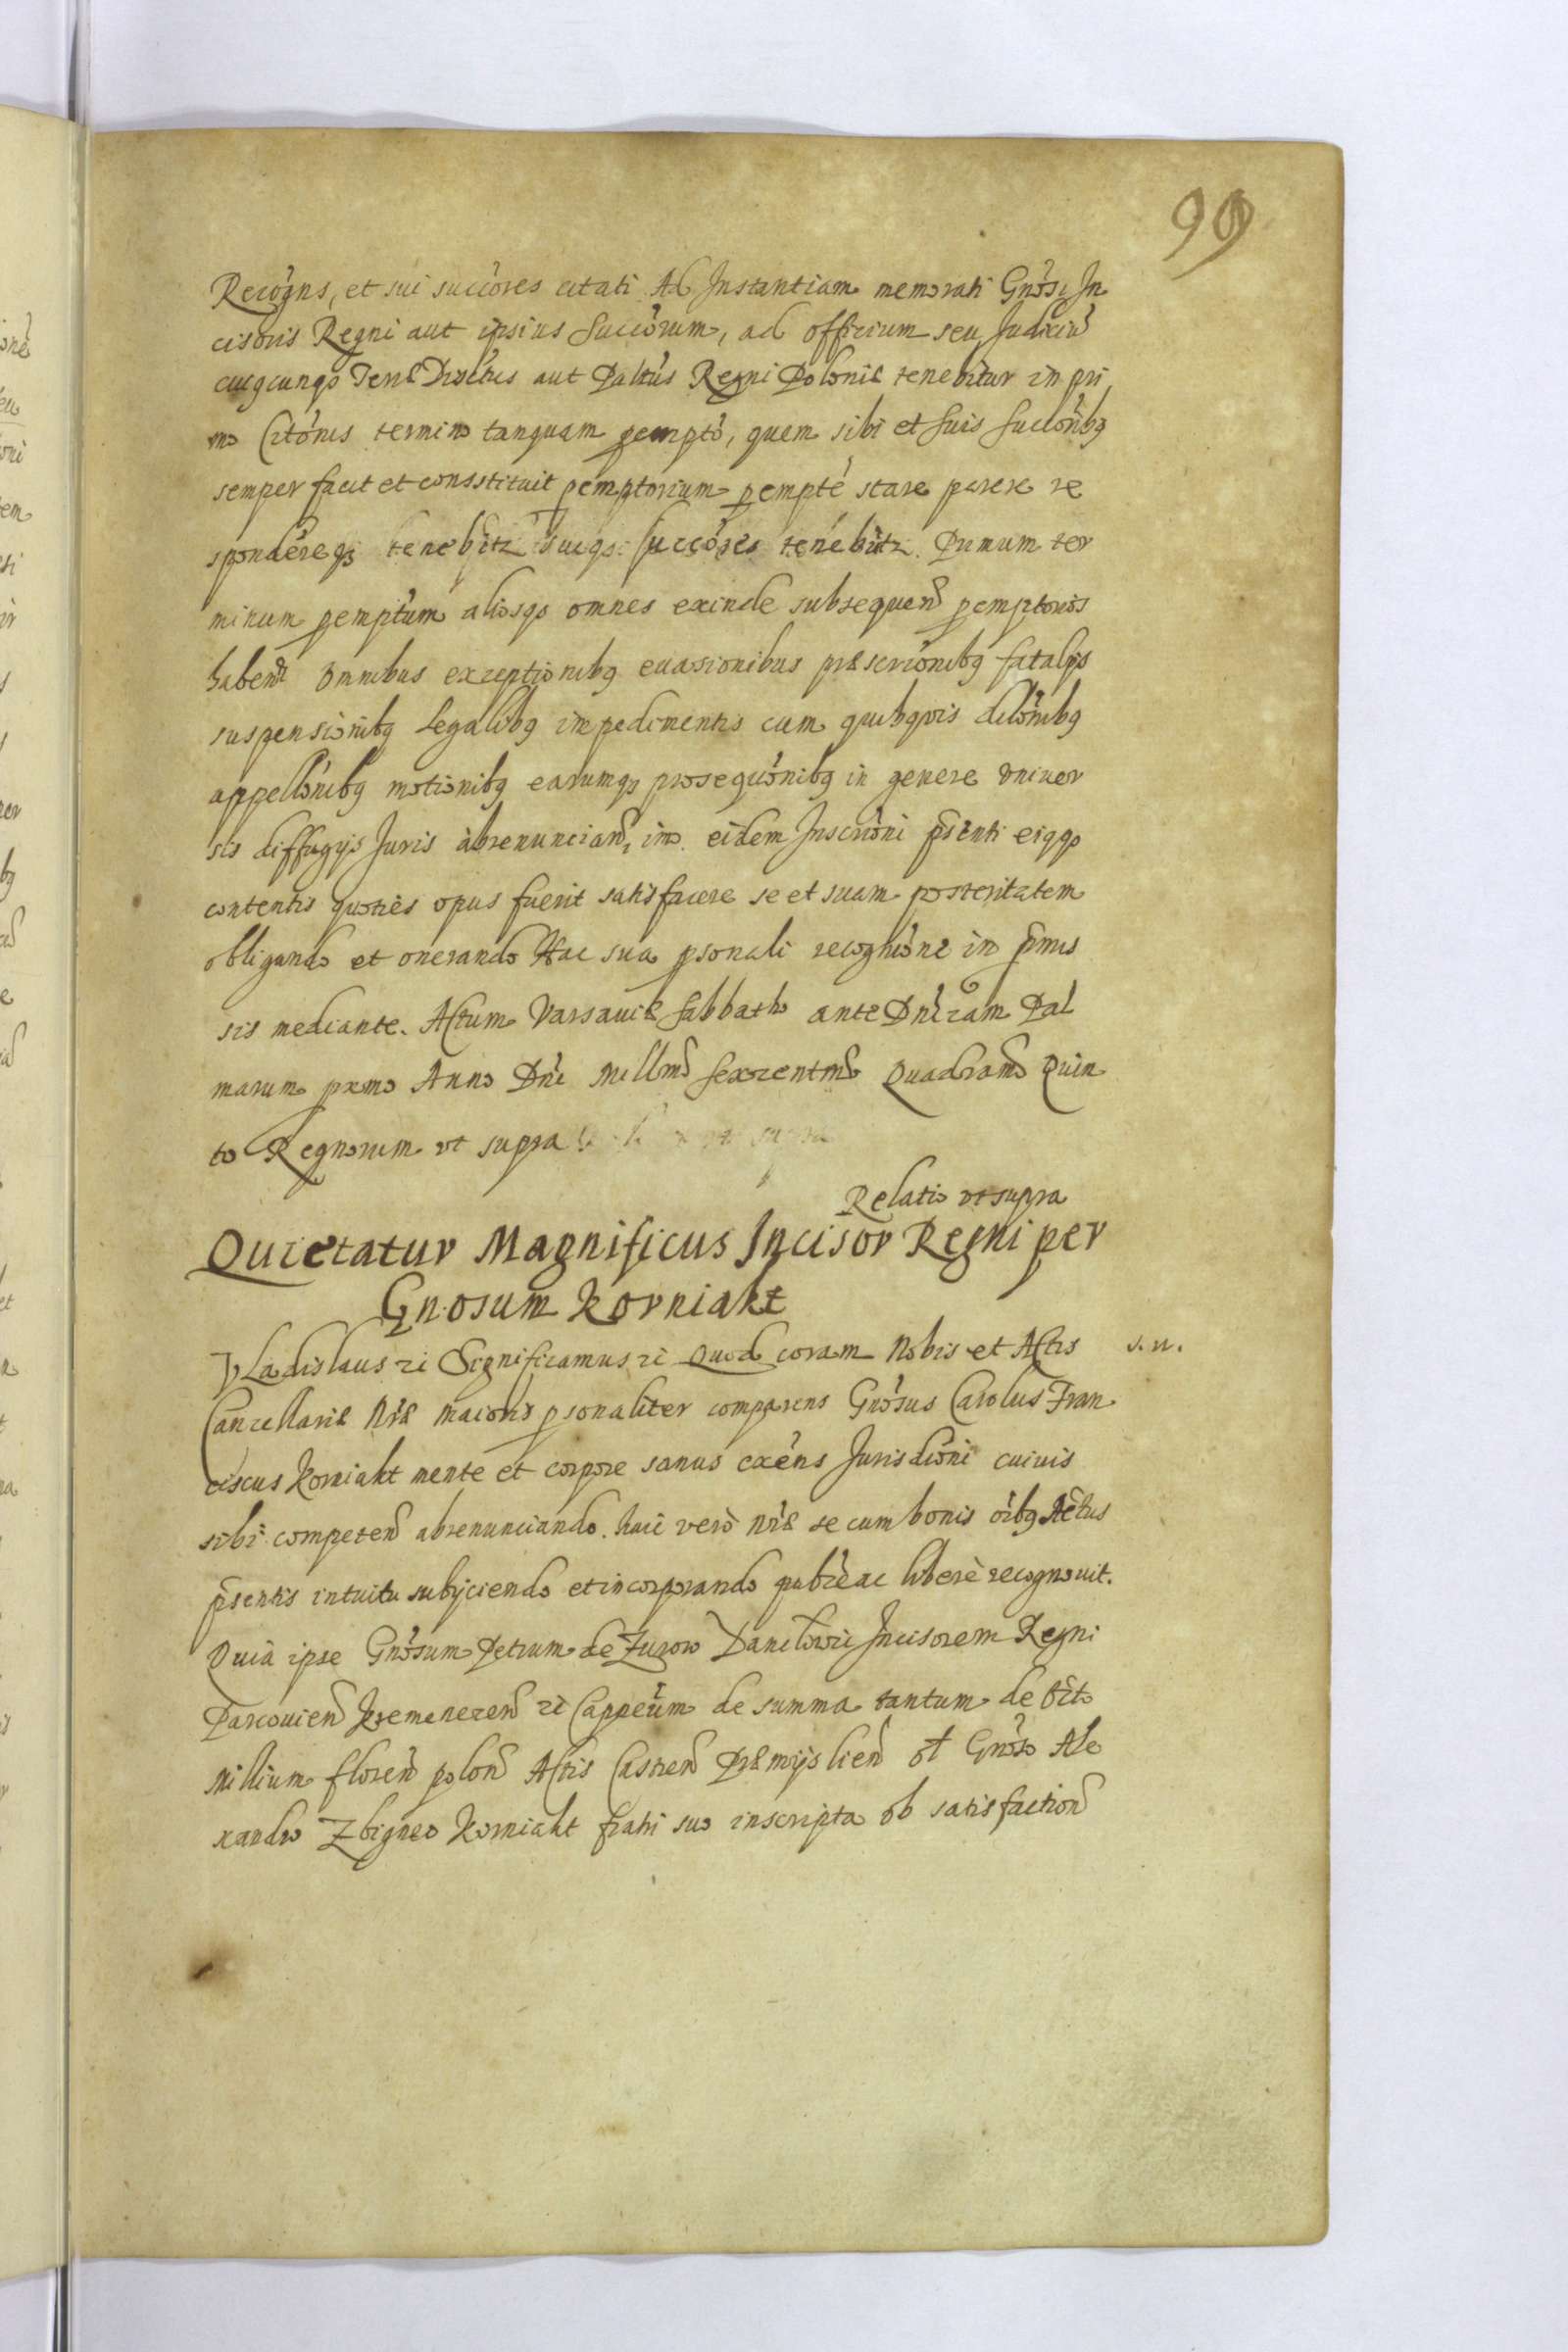 99
Recogns, et sui succores citati Ad Instantiam memorati Gnosi In
cisoris Regni aut ipsius Succorum, ad officium seu Judiciu
cuiqcunqs Terrae Districtus aut Paltus Regni Poloniae tenebitur in pri
mo Citonis termino tanquam pempto, quem sibi et suis succoribq
semper facit et consstituit pemptorium pempte stare parere re
spondereqs tenebitr suiqs succores tenebutr. Primum ter
minum pemptum aliosqs omnes exinde subsequen pemptorios
haben omnibus exceptionibq euasionibus praescrionibq fatalijs
suspensionibq Legalibq impedimentis cum quibquis dilonibq
appellonibq motionibq earumqs prosequonibq in genere vniuer
sis diffugijs Juris abrenuncian, imo eidem Inscrioni psenti eiqqs
contentis quoties opus fuerit satisfacere se et suam posteritatem
obligando et onerando Hac sua psonali recognione in pmis
sis mediante. Actum Varsauiae Sabbatho ante Dnicam Pal
marum pxmo Anno Dni Millmo Sexcentmo Quadramo Quin
to Regnorum vt supra
Relatio vt supra
Quietatur Magnificus Incisor Regni per
Gnosum Korniakt
Vladislaus ri Significamus ri Quod coram Nobis et Actis s. n.
Cancellariae Nrae maioris psonaliter comparens Gnosus Carolus Fran
ciscus Korniakt mente et corpore sanus exens Jurisdioni cuiuis
sibi competen abrenunciando. huic vero Nrae se cum bonis oibq Actus
psentis intuitu subijciendo et incorporando publice ac libere recognouit.
Quia ipse Gnosum Petrum de Zurow Danilowic Incisorem Regni
Parcouien Kremenecen ri Cappeum de summa tantum debito
Millium floren polon Actis Castren Praemijslien ol Gnoso Ale
xandro Zbigneo Korniakt fratri suo inscripta ob satisfaction